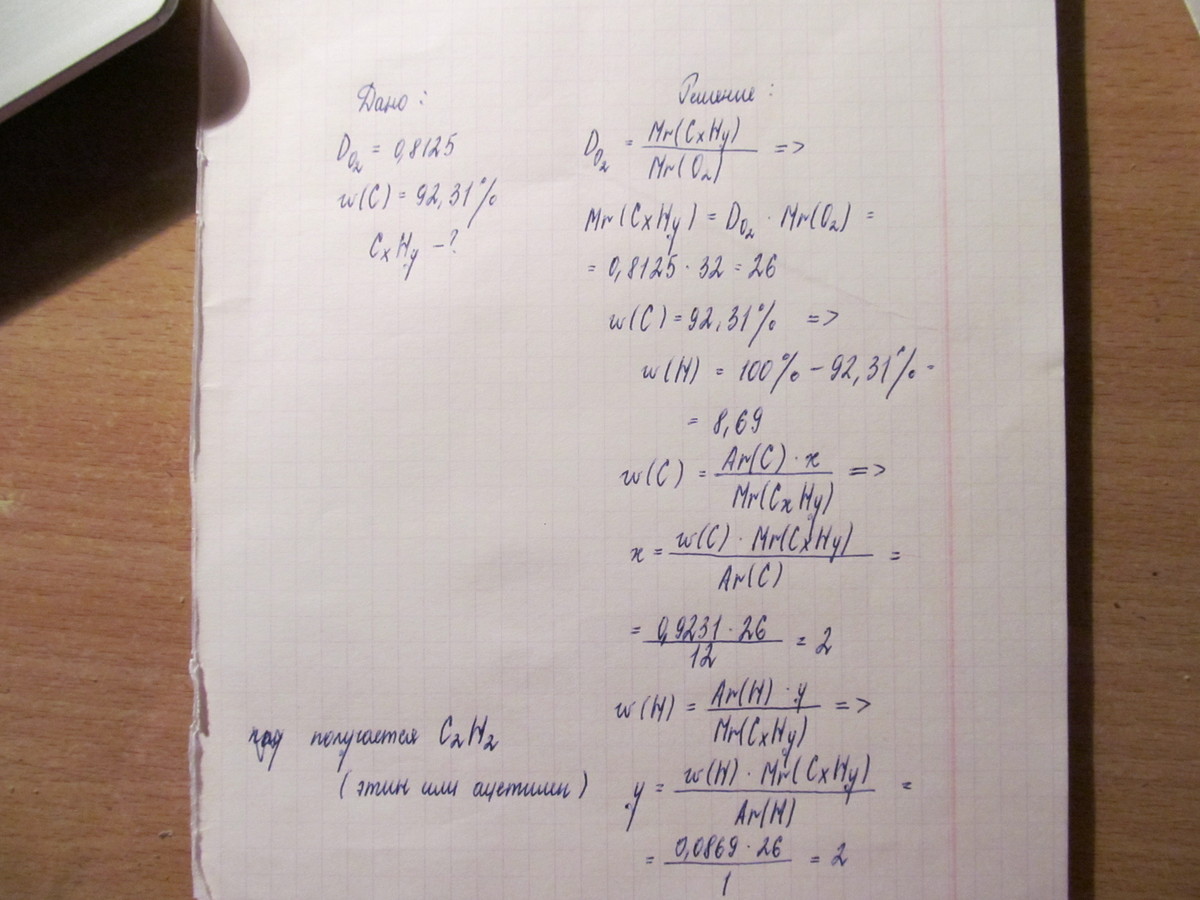 Дано:
D_O2 = 0,8125
w(C) = 92,31%
CxHy -?
Решение:
D_O2 = Mr(CxHy) / Mr(O2) =>
Mr(CxHy) = D_O2 · Mr(O2) =
= 0,8125 · 32 = 26
w(C) = 92,31% =>
w(H) = 100% - 92,31% =
= 8,69
w(C) = Ar(C) · x / Mr(CxHy) =>
x = w(C) · Mr(CxHy) / Ar(C) =
= 0,9231 · 26 / 12 = 2
w(H) = Ar(H) · y / Mr(CxHy) =>
y = w(H) · Mr(CxHy) / Ar(H) =
= 0,0869 · 26 / 1 = 2
получается C2H2
(этин или ацетилен)